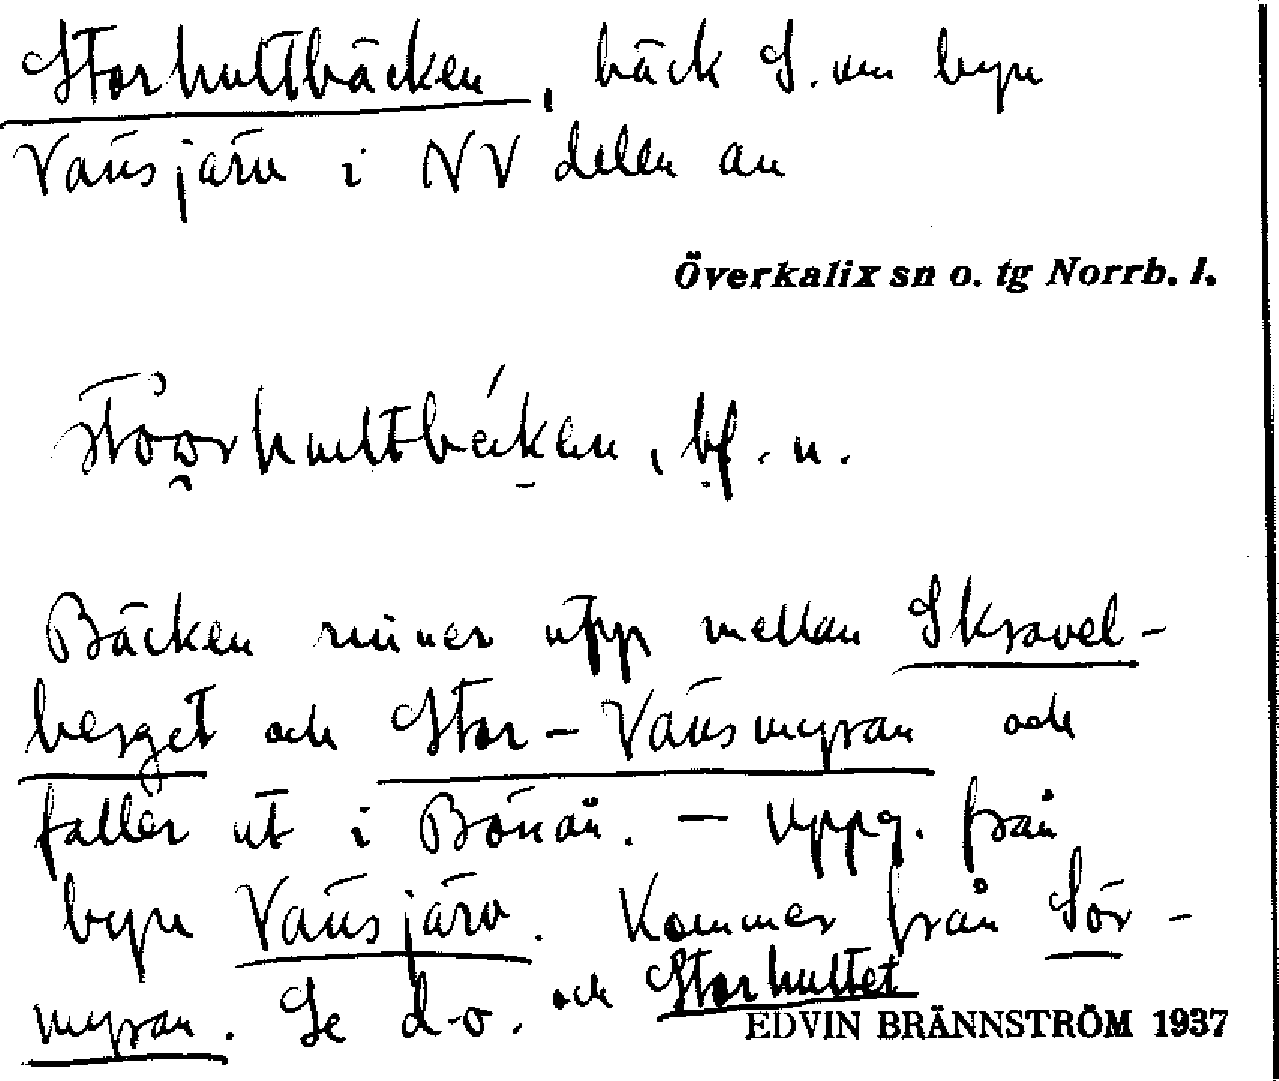 Storhultbäcken, bäck S. om byn
Vänsjärv i NV delen av
Överkalix sn o. tg Norrb. l.
bf. n.
Bäcken rinner upp mellan Skravel-
berget och Stor-Vänsmyran och
faller ut i Bönån. – Uppg. från
byn Vänsjärv. Kommer från Sör-
myran. Se d.o. och Storhultet
EDVIN BRÄNNSTRÖM 1937